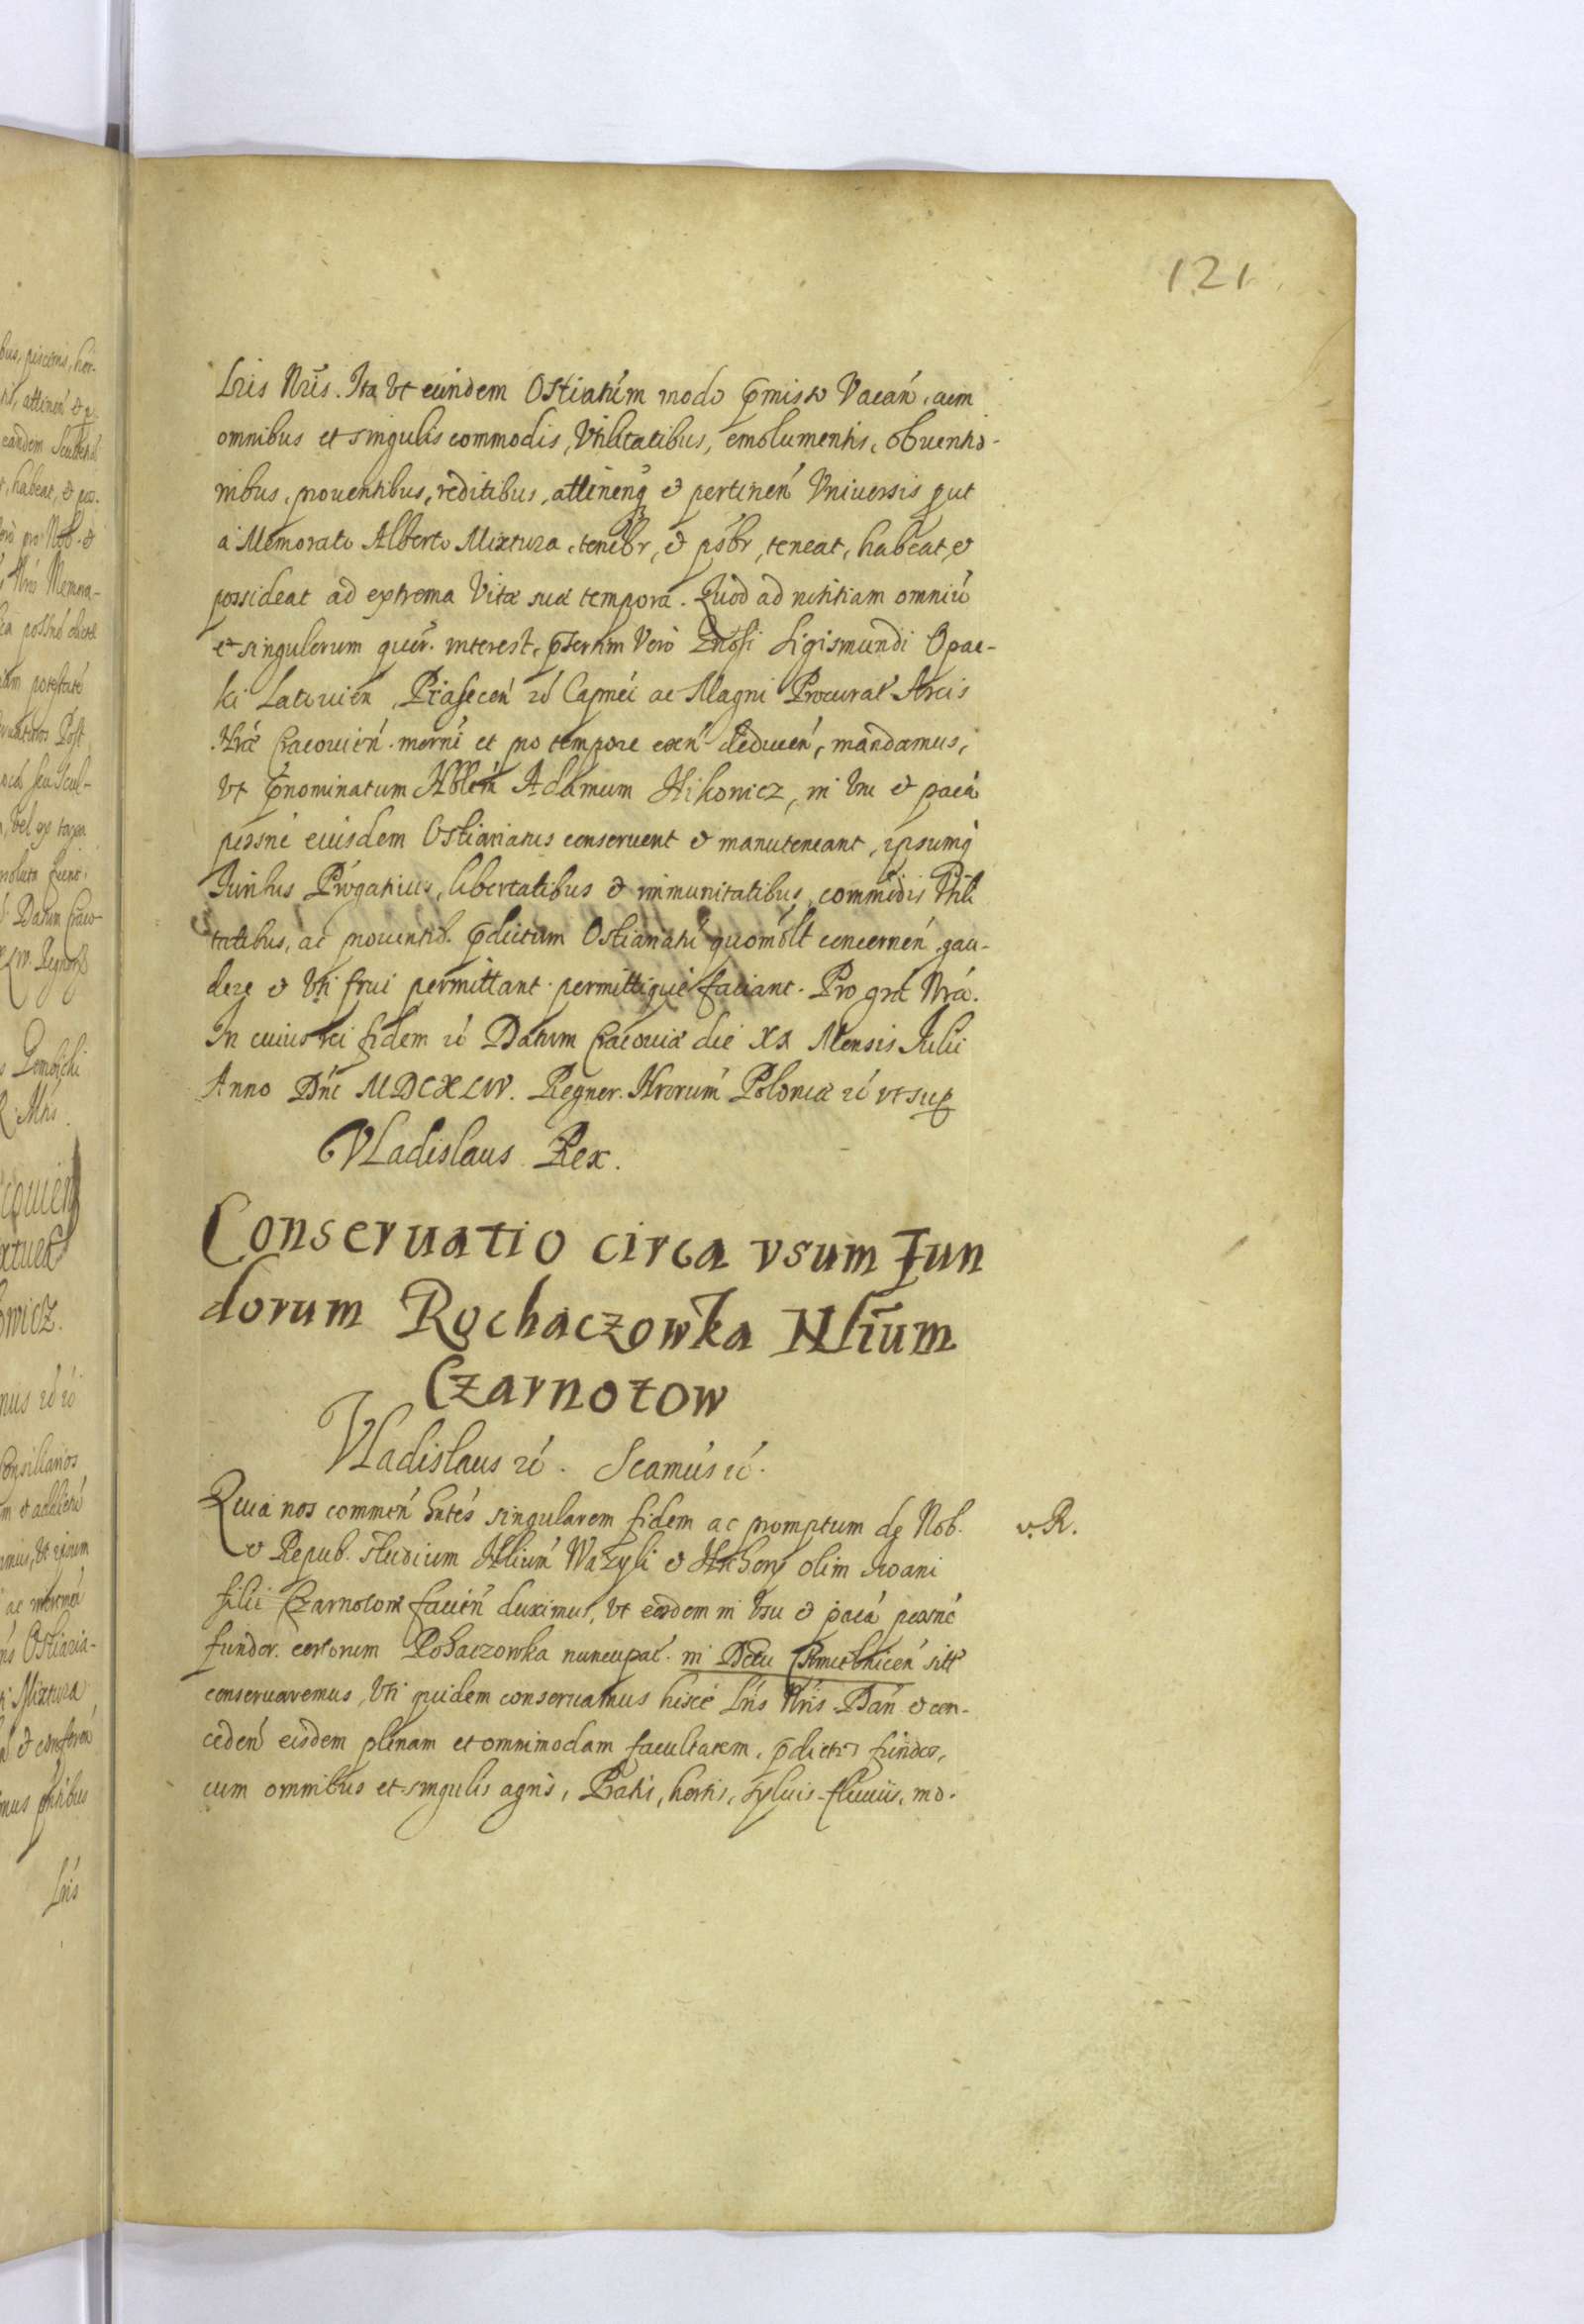 121
Lris Nris. Ita Vt eundem Ostiatum modo p̄misso Vacan̄. cum
omnibus et singulis commodis, Vtilitatibus, emolumentis, obuentio-
nibus, prouentibus, reditibus, attinenq̨ et pertinen̄ Vniuersis put
à Memorato Alberto Mixtura, tenebr, et psbr, teneat, habeat, et
possideat ad extrema Vitæ suæ tempora. Quod ad notitiam omniū
et singulorum quor. interest, p̄sertim Vero Gnosi Sigismundi Opac-
ki Latouien, Piasecen̄ rć Capnei ac Magni Procurat Arcis
Nræ Cracouien̄. merni et pro tempore exn̄ deducen̄, mandamus,
Vt p̄nominatum Nblem Adamum Hikowicz, in Vsu et paca
possne eiusdem Ostiariatus conseruent et manuteneant, ipsumq̨
Iuribus Prrogatiuis, libertatibus et immunitatibus, commodis Vtili
tatibus, ac prouentib. p̄dictum Ostiariatū quomolt concernen̄, gau-
dere et Vti frui permittant. permittique faciant. Pro gra Nra.
In cuius rei fidem rć Datum Cracouiæ die XX Mensis Iulii
Anno Dni MDCXLIV. Regnor. Nrorum Poloniæ rć vt sup
Vladislaus Rex.
Conseruatio circa vsum Fun
dorum Rochaczowka Nlium
Czarnotow
Vladislaus rć. Scamus rć.
Quia nos commen̄ hntes singularem fidem ac promptum de Nob. v. R.
et Repub. studium Nlium Wazyli et Hrehory olim Iwani
filii Czarnotow facien̄ duximus, Vt eosdem in Vsu et paca possne
fundor. certorum Rohaczowka nuncupat. in Dctu Chmielnicen̄ sitt
conseruaremus, Vti quidem conseruamus hisce Lris Nris. Dan̄ et con-
ceden̄ eisdem plenam et omnimodam facultatem, p̄dictos fundos,
cum omnibus et singulis agris, Pratis, hortis, syluis, fluuiis, mo-